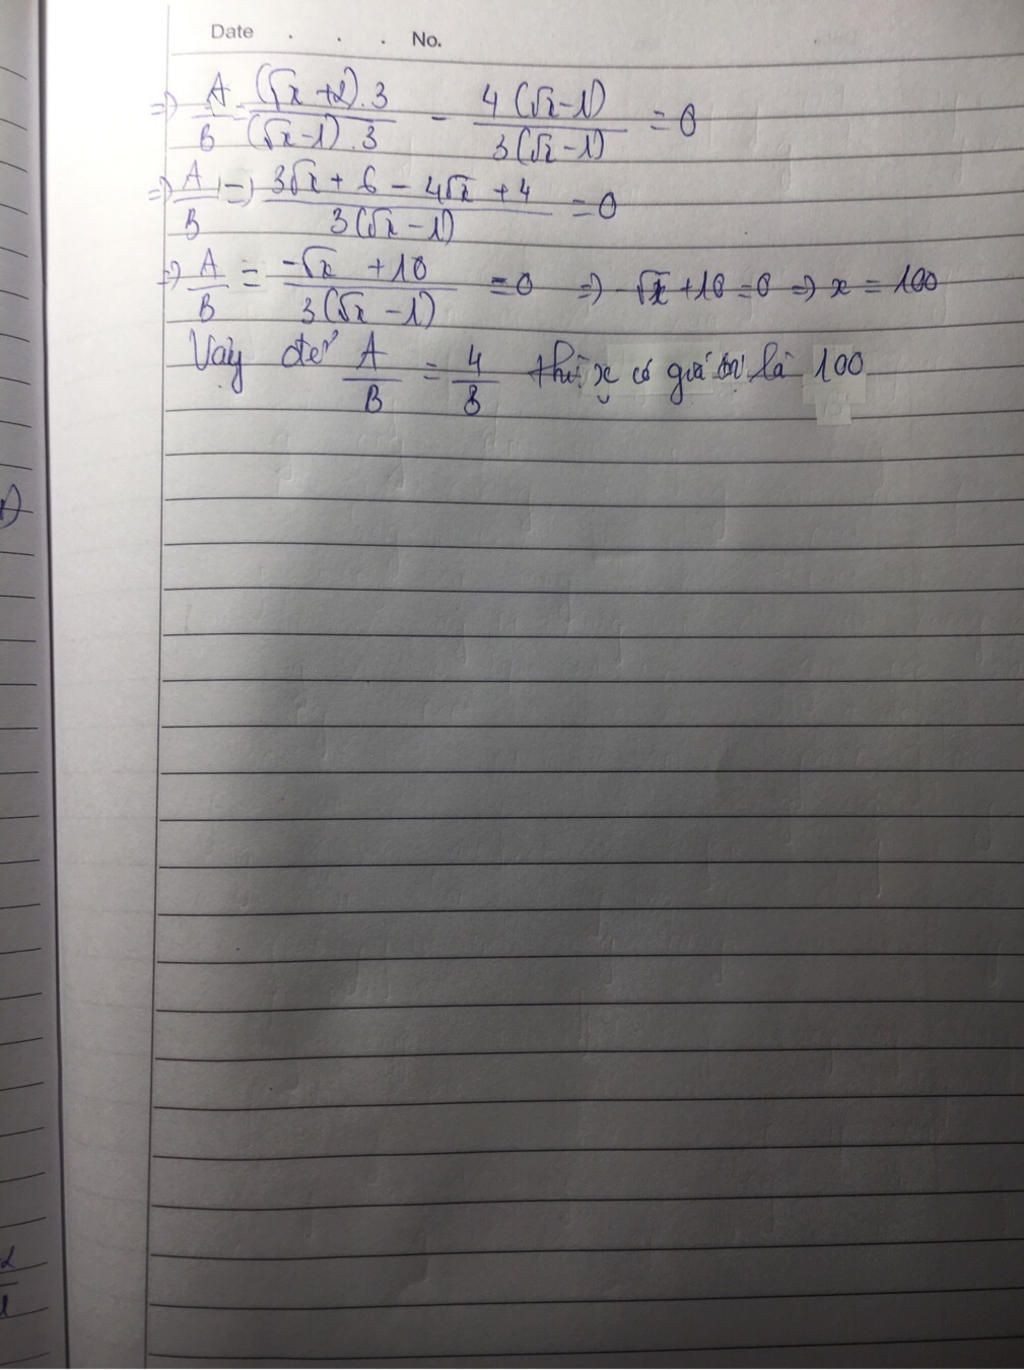 Date . . . No.
=> A/B = (√x + 2).3/(√x - 1).3 - 4(√x - 1)/3(√x - 1) = 0
=> A/B = 3√x + 6 - 4√x + 4/3(√x - 1) = 0
=> A/B = -√x + 10/3(√x - 1) = 0 => -√x + 10 = 0 => x = 100
Vậy để A/B = 4/3 thì x có giá trị là 100